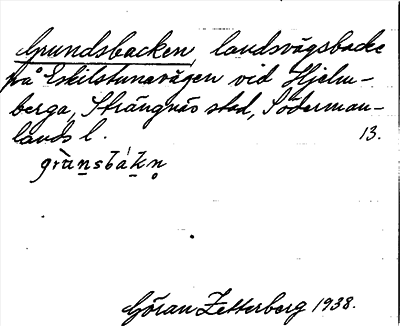 Grundsbacken, landsvägsbacke
på Eskilstunavägen vid Hjelm-
berga, Strängnäs stad, Söderman-
lands l. 13.
grùnsbákn̥
Göran Zetterberg 1938.